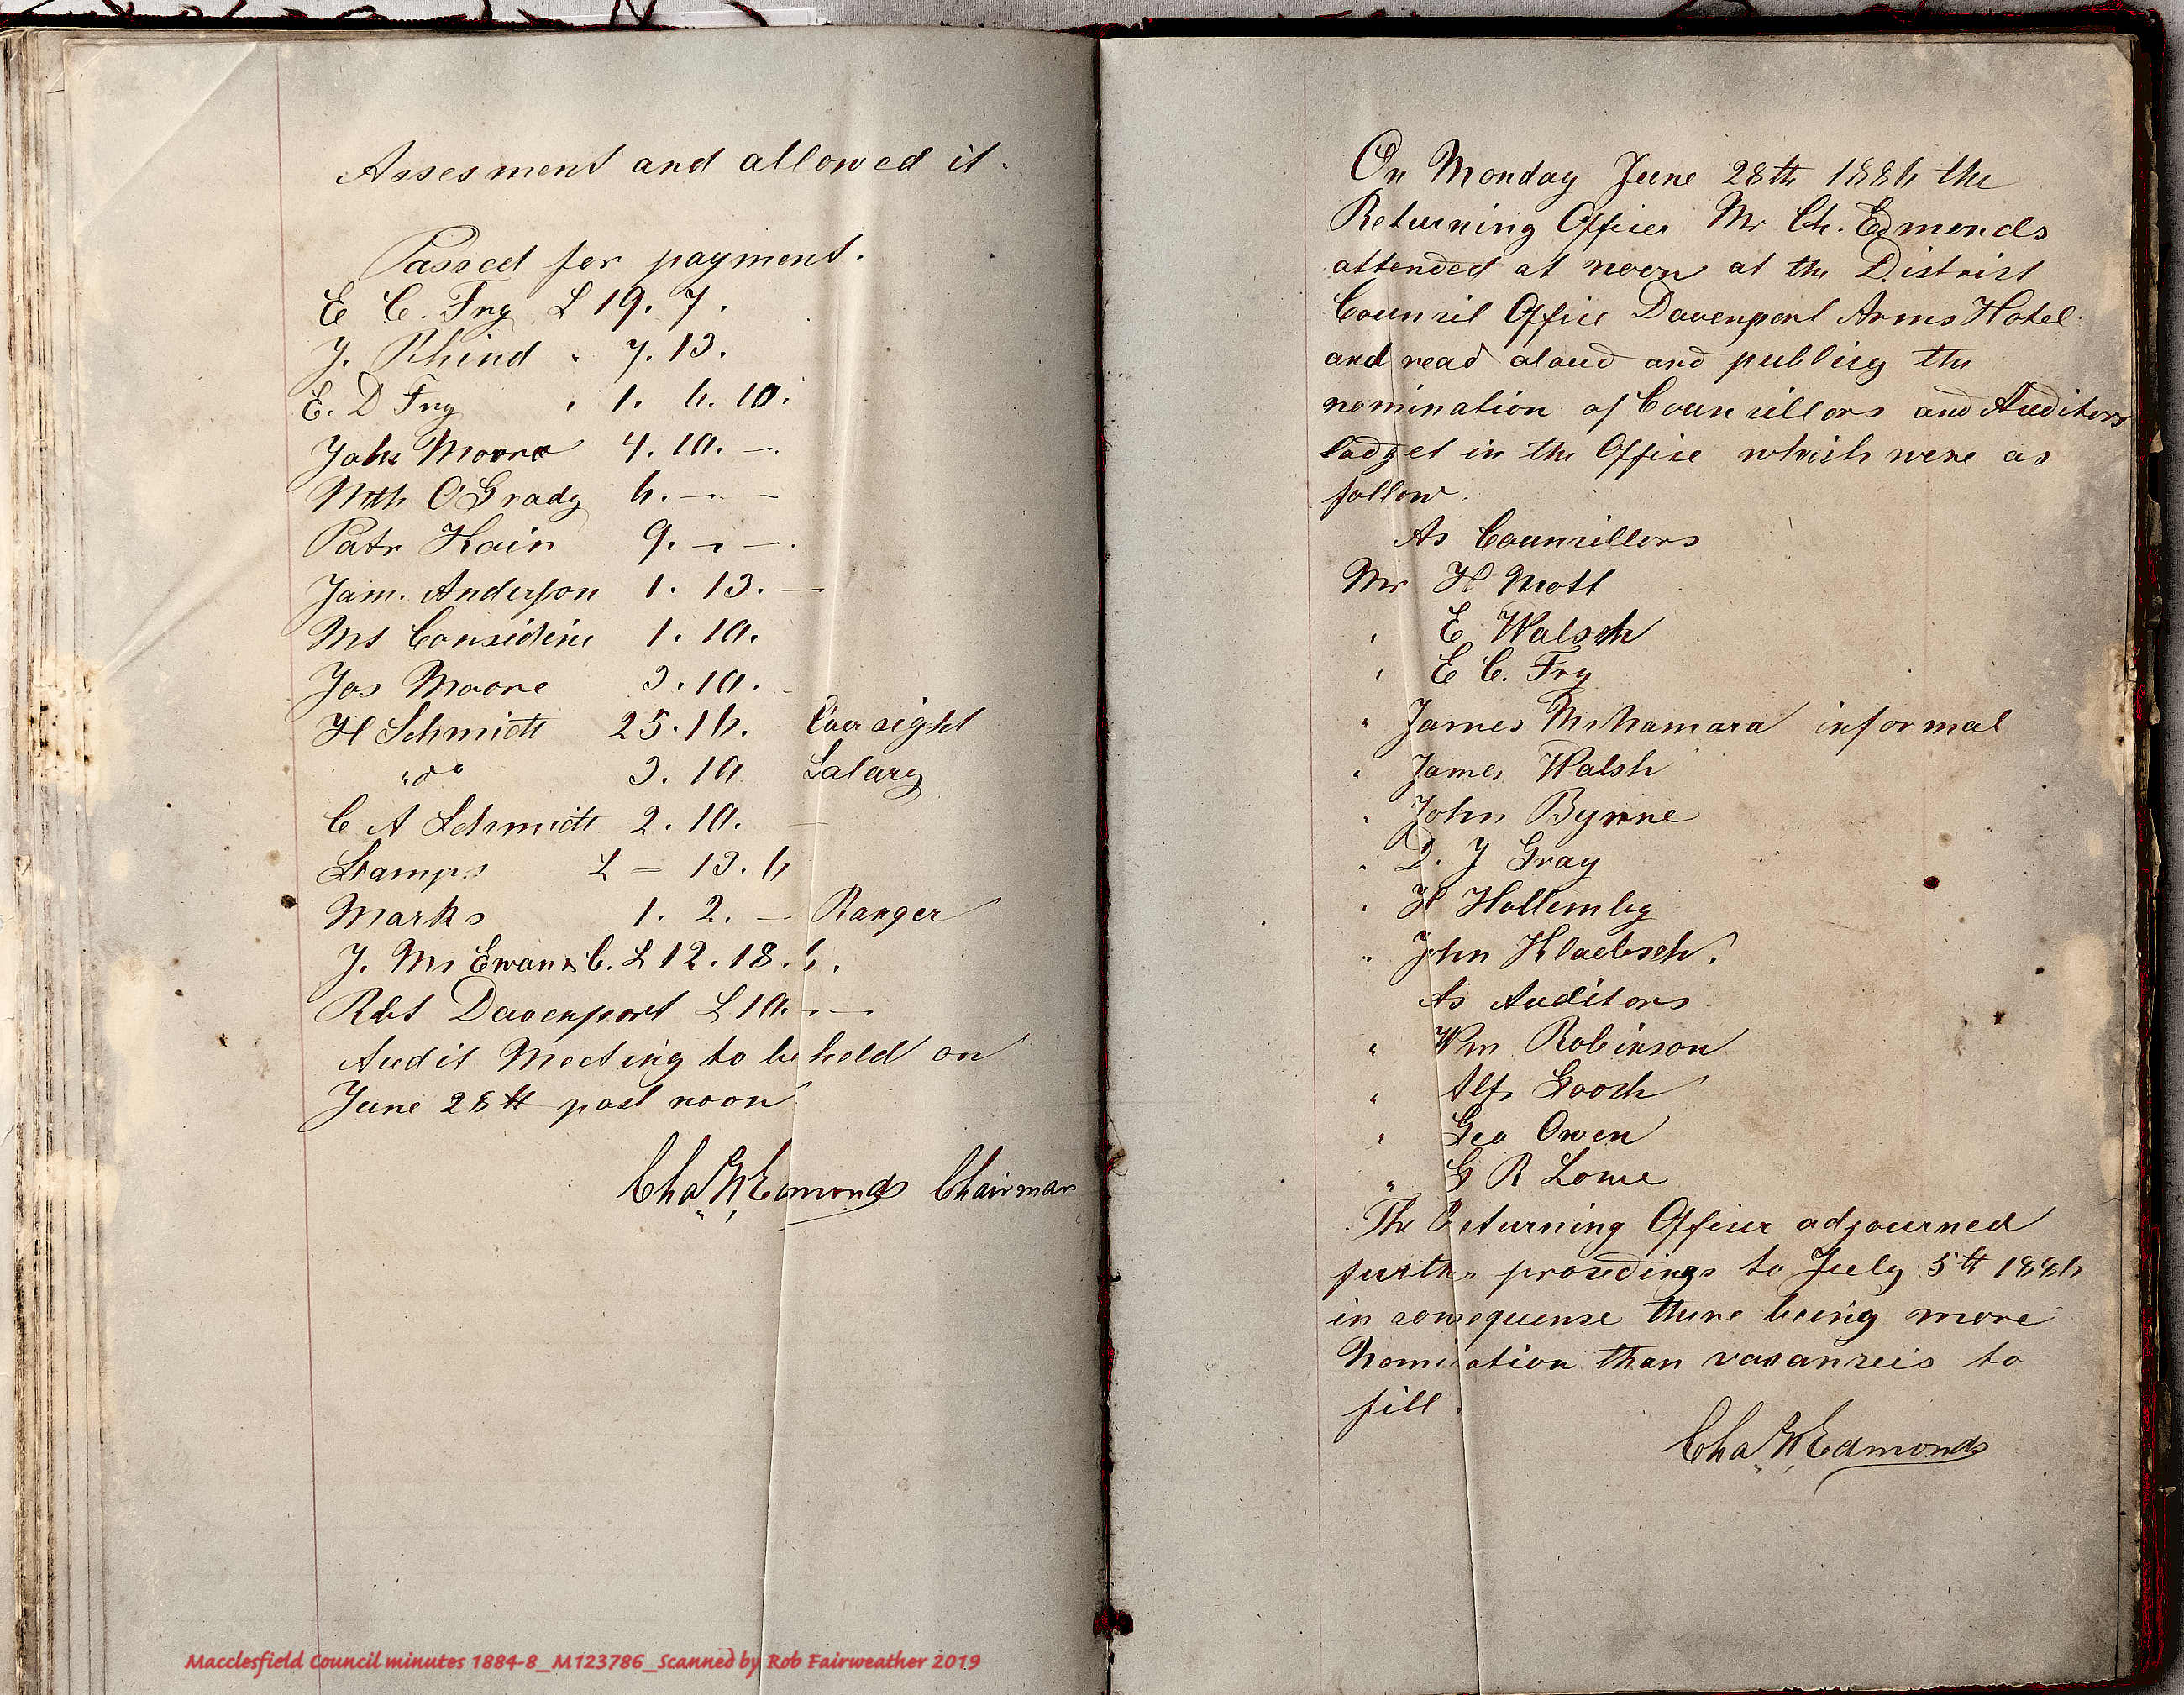 Assesment and allowed it.
Passed for payment.
E C. Fry £ 19. 7.
J. Rhind " 7. 13.
E. D Fry " 1. 6. 10.
John Moore 4. 10. —.
Mth O'Grady 6. — —
Patr Kain 9. — —.
Jam. Anderson 1. 13. —
Mt Considine 1. 10.
Jos Moore 3. 10. -
H Schmidt 25. 16. Oversight
" do 3. 10 Salary
C A Schmidt 2. 10. —
Stamps £ — 13. 6
Marks 1. 2. — Ranger
J. Mc Ewan & C. £ 12. 18. 6.
Rbt Davenport £ 10. — —
Audit Meeting to be held on
June 28th past noon
Chas W. Edmonds Chairman
On Monday June 28th 1886 the
Returning Officer Mr Ch. Edmonds
attended at noon at the District
Council Office Davenport Arms Hotel
and read aloud and publicy the
nomination of Councillors and Auditors
lodget in the Office which were as
follow.
As Councillors
Mr H Mott
" E Walsch
" E C. Fry
" James McNamara informal
" James Walsh
" John Byrne
" D. J Gray
" H
" John Klaebsch.
As Auditors
" Wm Robinson
" Alf. Gooch
" Geo Owen
" G R Lowe
The Returning Officer adjourned
further procedings to July 5th 1886
in consequense there being more
Nomination than vacanceis to
fill.
Chas W. Edmonds
Macclesfield Council minutes 1884-8_M123786_Scanned by Rob Fairweather 2019